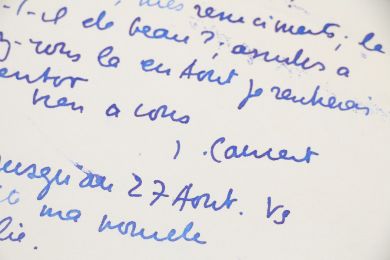 , mes remerciments; le
-t-il de beau?; assules a
z-vous la en Aout je rentrerais
entor
bien a vous
). Laurent
jusqu'au 27 Aout. Vs
ma nouvele
lie.